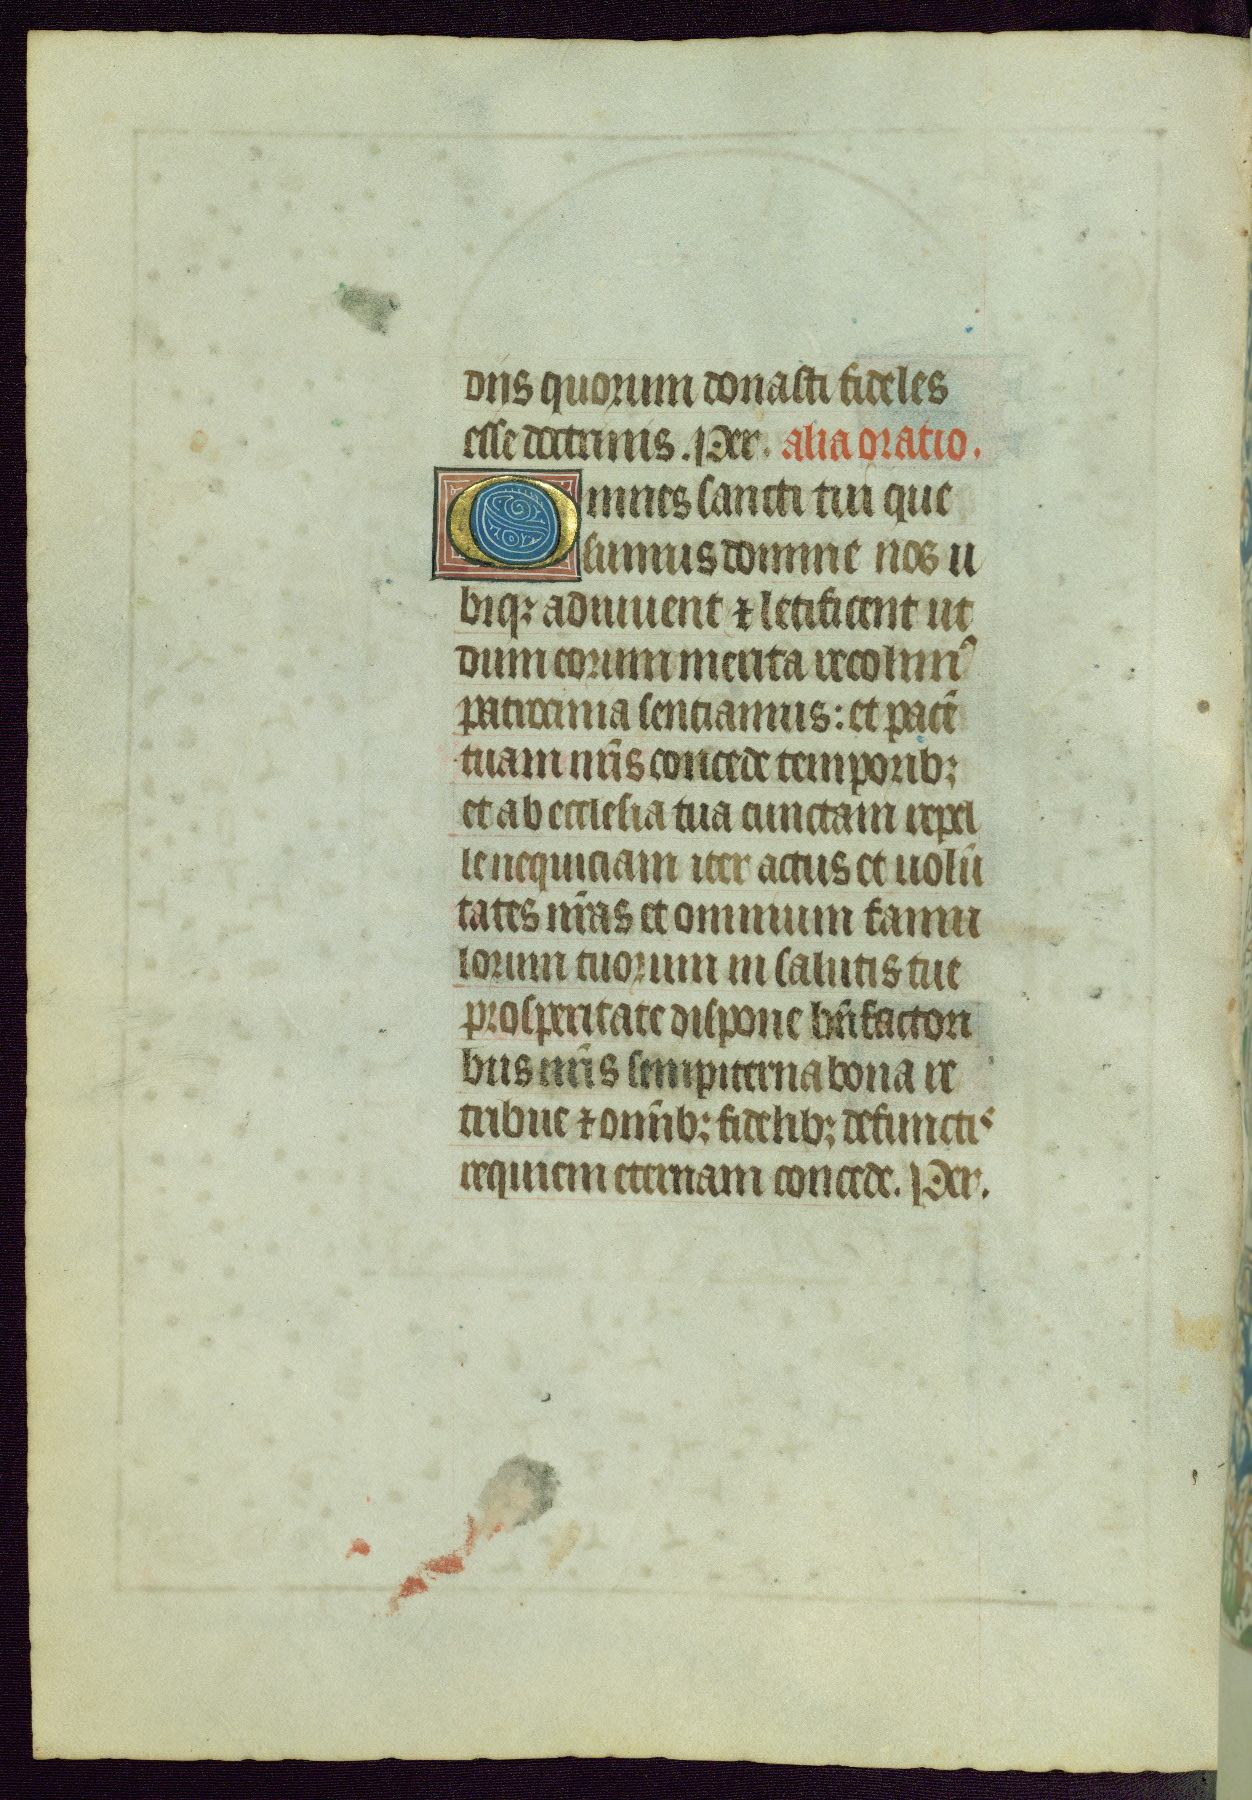 dns quorum donasti fideles
esse doctrinis. Per. alia oratio.
Omnes sancti tui que
sumus domine nos u
biqꝫ adiuuent ⁊ letificent ut
dum eorum merita recolimꝰ
patrocinia sentiamus: et pacē
tuam nr̄is concede temporibꝫ
et ab ecclesia tua cunctam repel
le nequiciam iter actus et uolū
tates nr̄as et omnium famu
lorum tuorum in salutis tue
prosperitate dispone bn̄factori
bus nr̄is sempiterna bona re
tribue ⁊ omībꝫ fidelibꝫ defunctis
requiem eternam concede. Per.